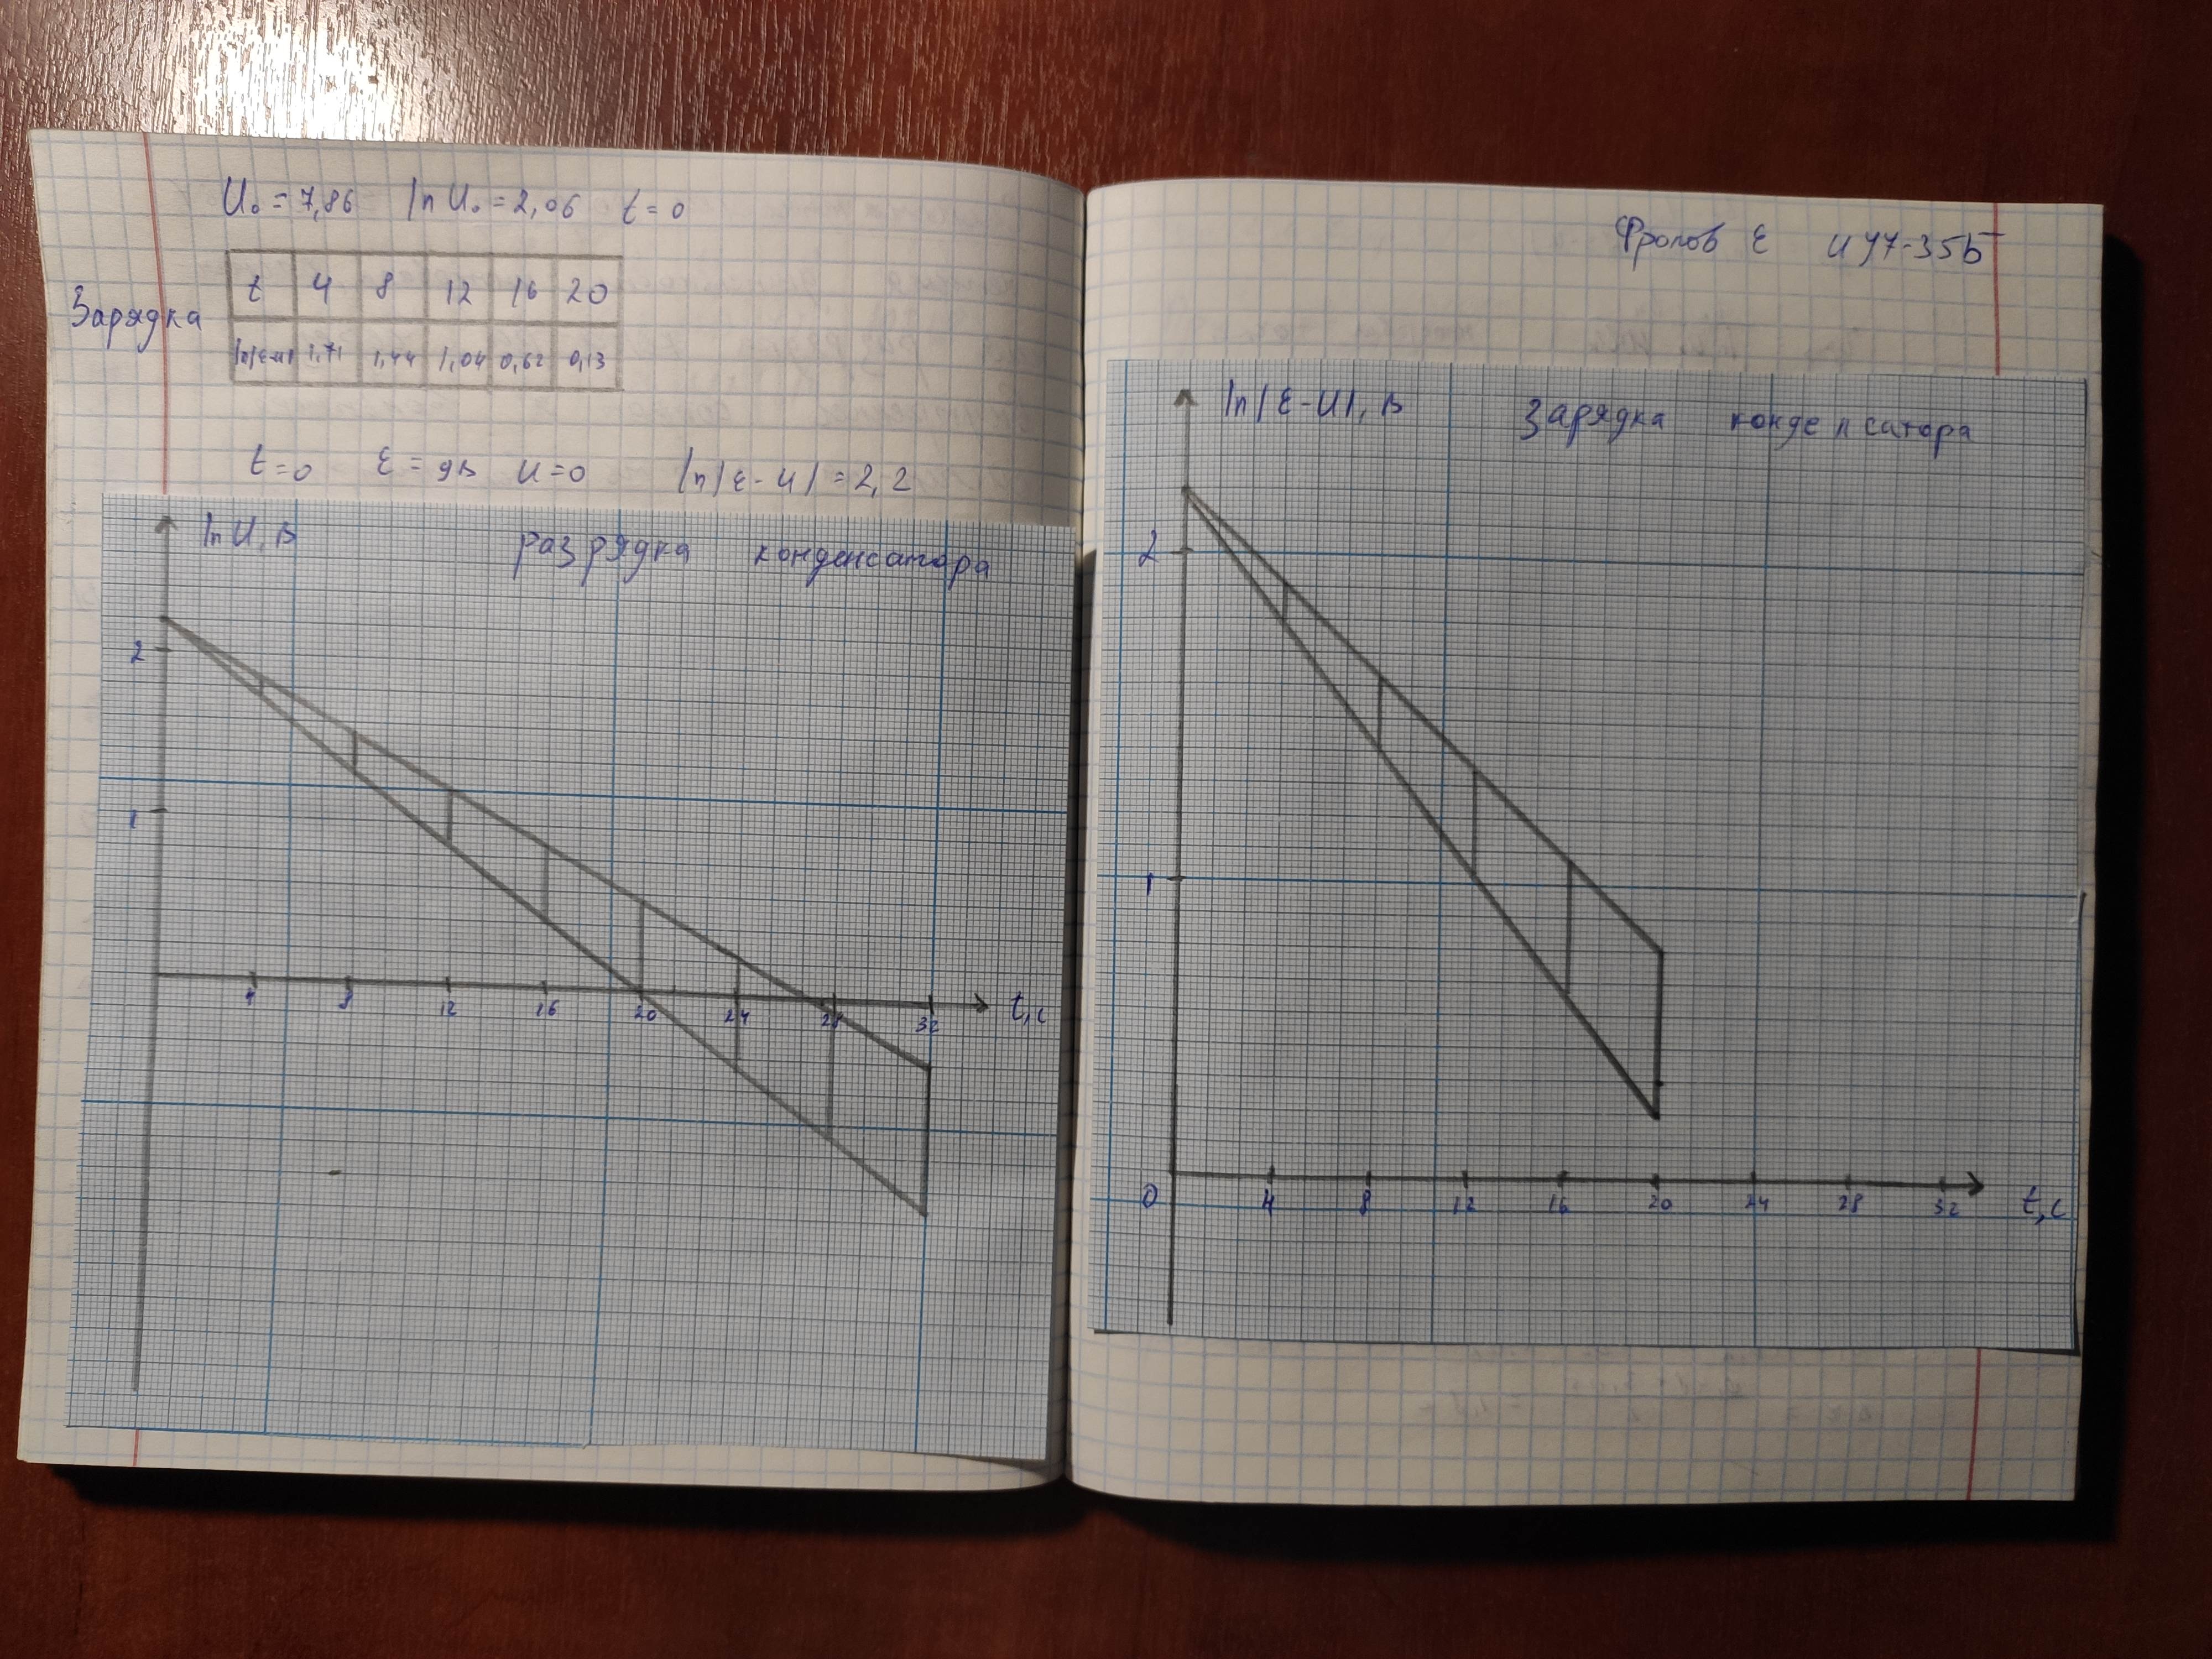 U₀ = 7,86 ln U₀ = 2,06 t = 0
Зарядка
t 4 8 12 16 20
ln|ε-u| 1,71 1,44 1,04 0,62 0,13
t=0 ε = 9В u=0 ln|ε-u| = 2,2
ln U, В разрядка конденсатора
2
1
4 8 12 16 20 24 28 32 t, с
Фролов Е ИУ7-35Б
ln|ε-U|, В Зарядка конденсатора
2
1
0 4 8 12 16 20 24 28 32 t, с